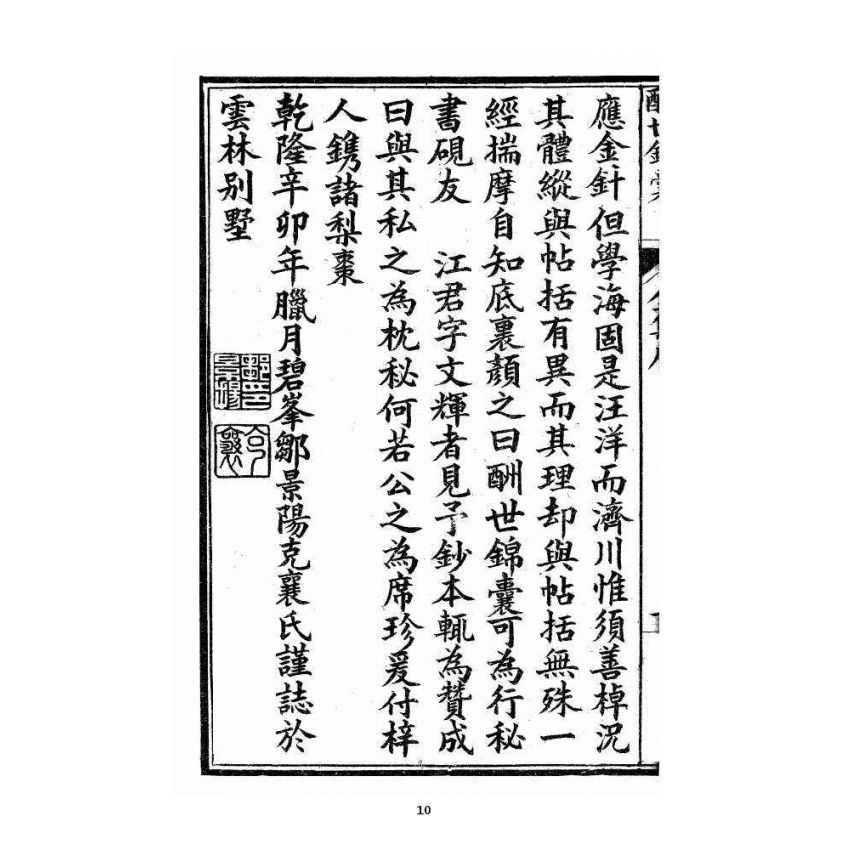 酬世錦囊
應金針但學海固是汪洋而濟川惟須善棹況
其體縱與帖括有異而其理却與帖括無殊一
經揣摩自知底裏顏之曰酬世錦囊可為行秘
書硯友 江君字文輝者見予鈔本輒為贊成
曰與其私之為枕秘何若公之為席珍爰付梓
人鐫諸梨棗
乾隆辛卯年臘月碧峯鄒景陽克襄氏謹誌於
雲林別墅
克襄
10